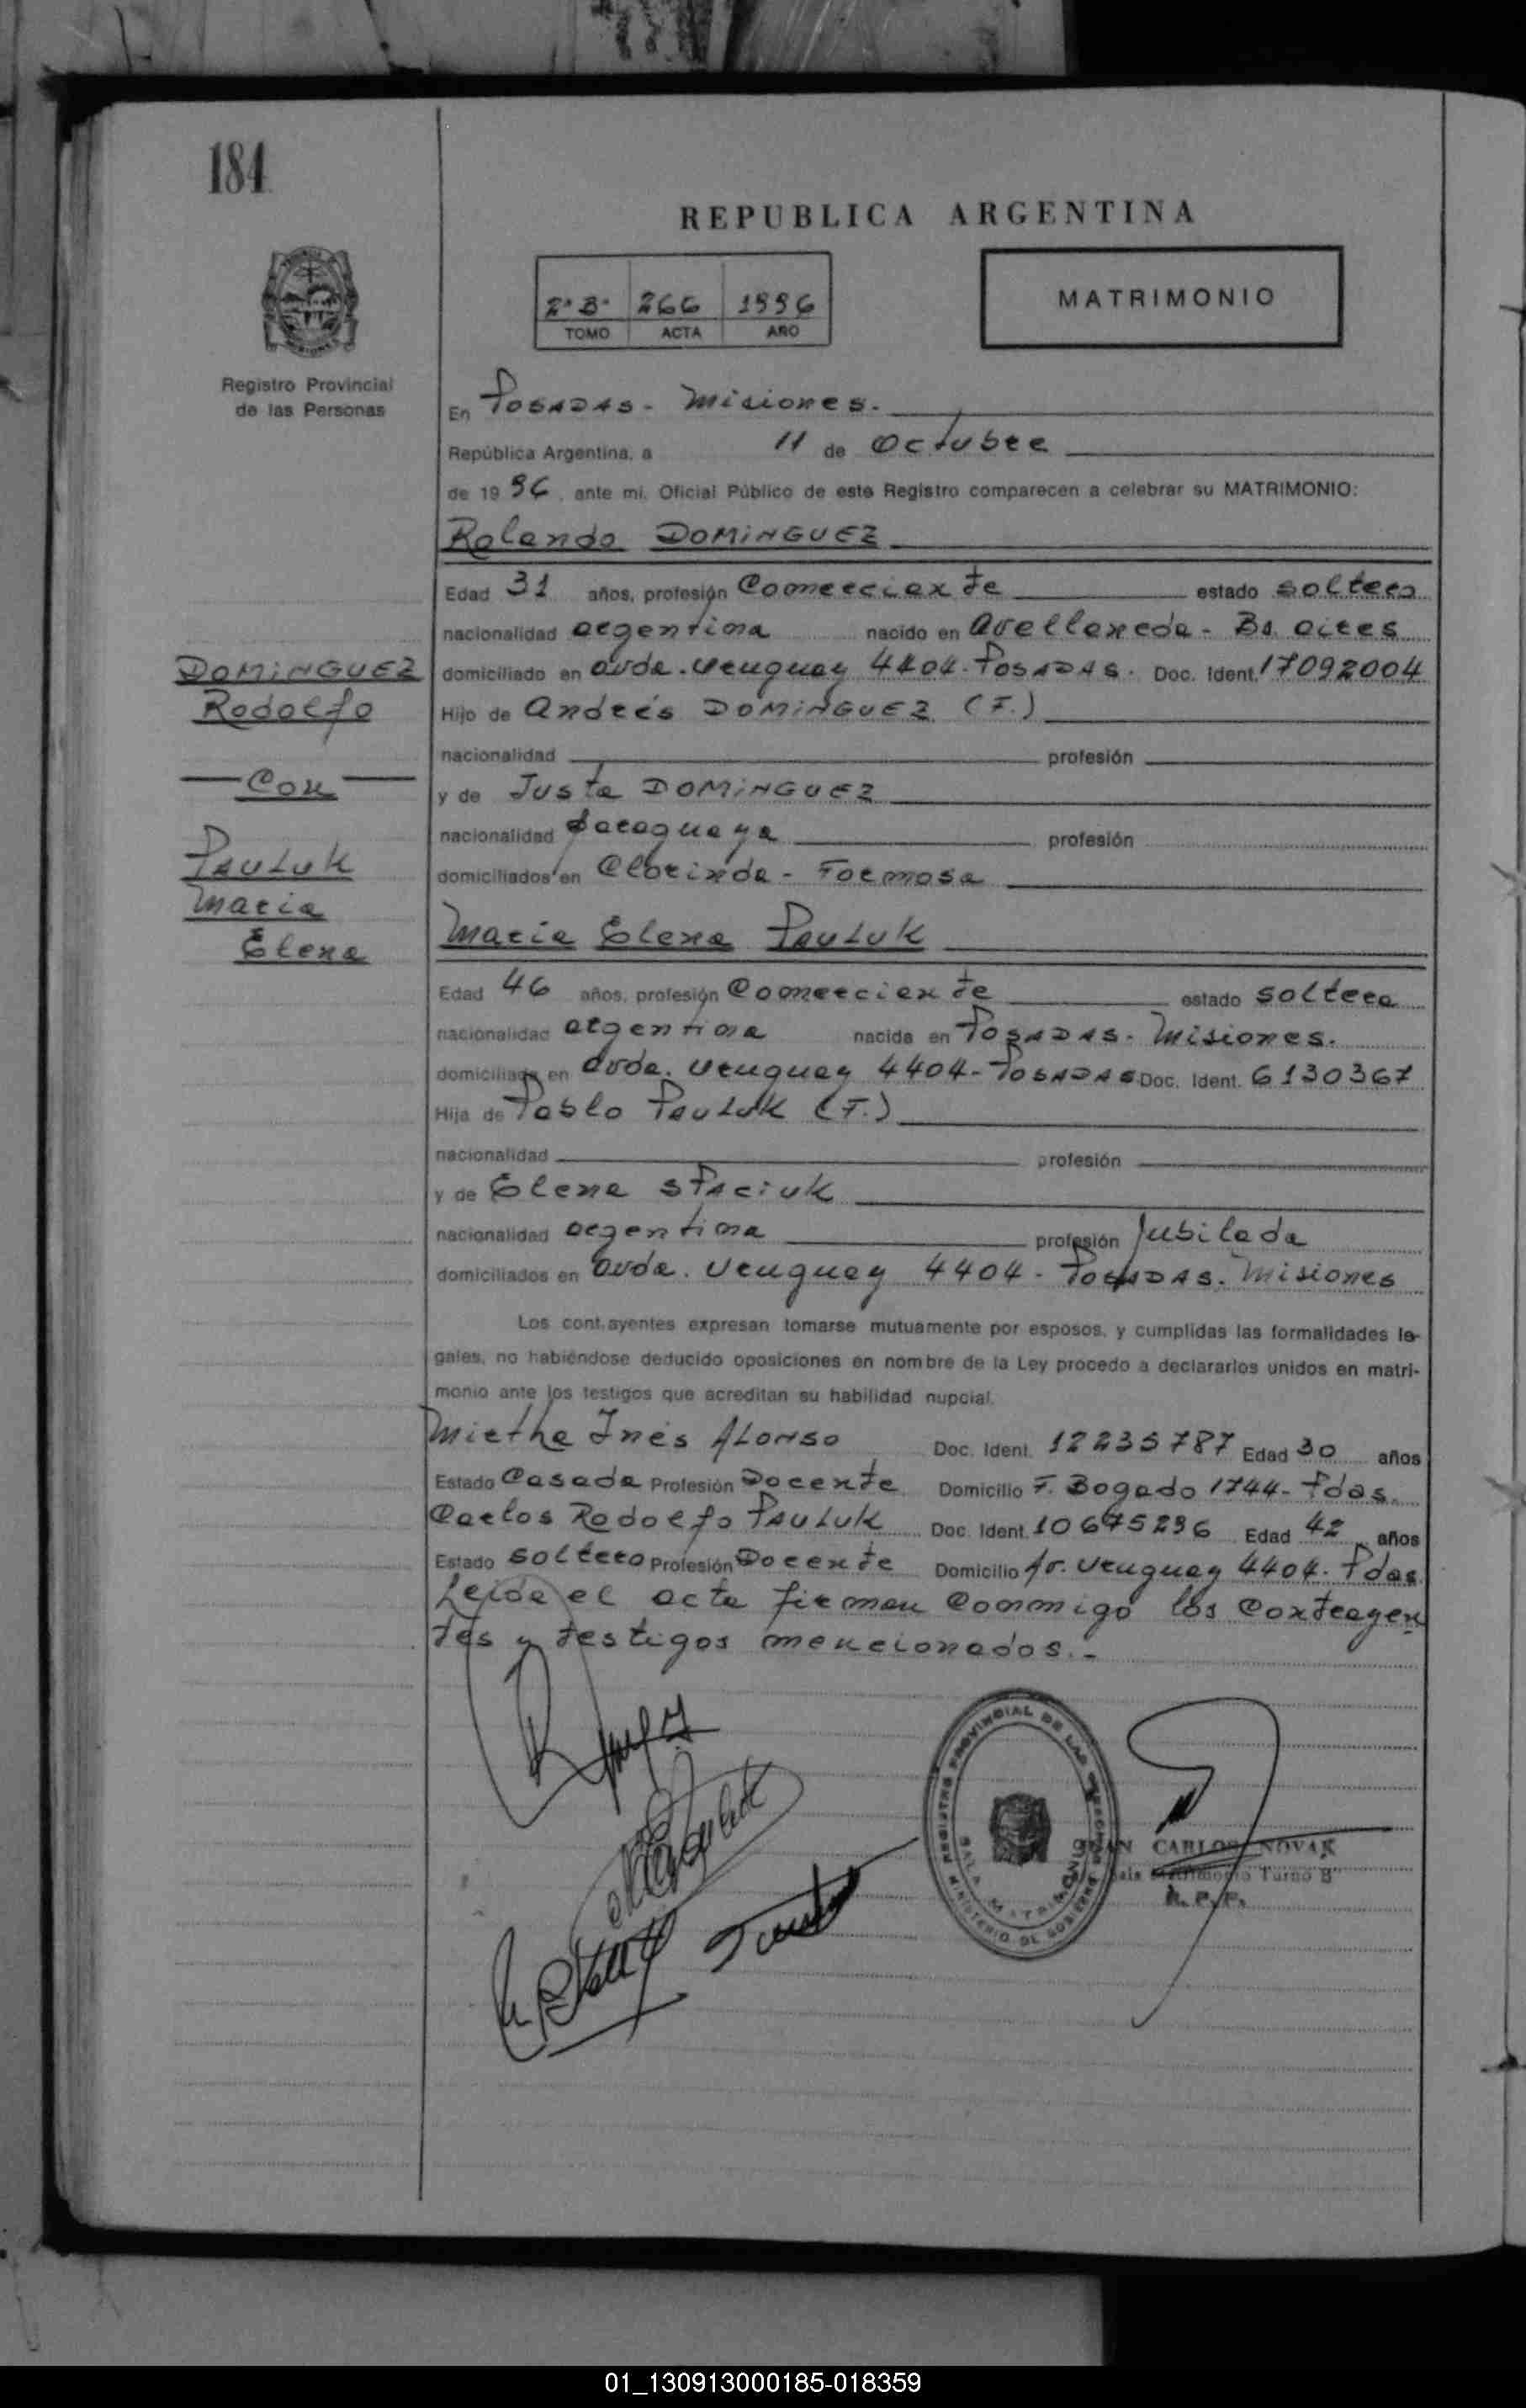 184
REPUBLICA ARGENTINA
2º B· 266 1996
TOMO ACTA AÑO
MATRIMONIO
Registro Provincial
de las Personas
En Posadas - Misiones.
República Argentina, a 11 de Octubre
de 1996, ante mi, Oficial Público de este Registro comparecen a celebrar su MATRIMONIO:
Rolando DOMINGUEZ
Edad 31 años, profesión Comerciante estado soltero
nacionalidad argentina nacido en Avellaneda - Bs. aires
domiciliado en avda. Uruguay 4404 - Posadas. Doc. Ident. 17092004
Hijo de Andrés DOMINGUEZ (F.)
nacionalidad profesión
y de Justa DOMINGUEZ
nacionalidad paraguaya profesión
domiciliados en Clorinda - Formosa
DOMINGUEZ
Rodolfo
Con
PAULUK
Maria
Elena
Maria Elena PAULUK
Edad 46 años, profesión Comerciante estado soltera
nacionalidad argentina nacida en Posadas - Misiones.
domiciliada en avda. Uruguay 4404 - Posadas Doc. Ident. 6130367
Hija de Pablo PAULUK (F.)
nacionalidad profesión
y de Elena STACIUK
nacionalidad argentina profesión Jubilada
domiciliados en avda. Uruguay 4404 - Posadas. Misiones
Los contrayentes expresan tomarse mutuamente por esposos, y cumplidas las formalidades le-
gales, no habiéndose deducido oposiciones en nombre de la Ley procedo a declararlos unidos en matri-
monio ante los testigos que acreditan su habilidad nupcial.
Mirtha Inés ALONSO Doc. Ident. 12235787 Edad 30 años
Estado Casada Profesión Docente Domicilio F. Bogado 1744 - Pdas.
Carlos Rodolfo PAULUK Doc. Ident. 10675296 Edad 42 años
Estado soltero Profesión Docente Domicilio Av. Uruguay 4404. Pdas
Leída el acta firman conmigo los contrayen
tes y testigos mencionados.-
REGISTRO PROVINCIAL DE LAS PERSONAS
SALA MATRIMONIO
MINISTERIO DE GOBIERNO
JUAN CARLOS NOVAK
Sala Matrimonio Turno B
R. P. P.
01_130913000185-018359